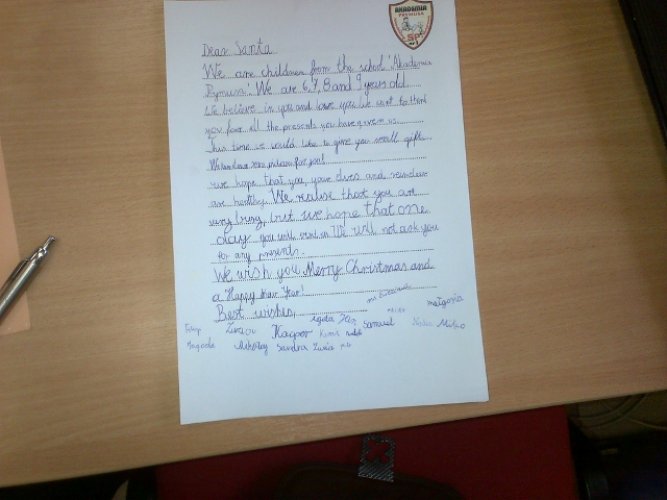 AKADEMIA
SP
Dear Santa
We are children from the school 'Akademia
Prymusa'. We are 6,7,8 and 9 years old.
We believe in you and love you. We want to thank
you for all the presents you have given us.
This time we would like to give you small gifts.
for you!
We hope that you, your elves and reindeer
are healthy. We realise that you are
very busy, but we hope that one
day you will visit us. We will not ask you
for any presents.
We wish you Merry Christmas and
a Happy New Year!
Best wishes,
Kacper Samuel Małgosia
Mikołaj Sandra Zuzia